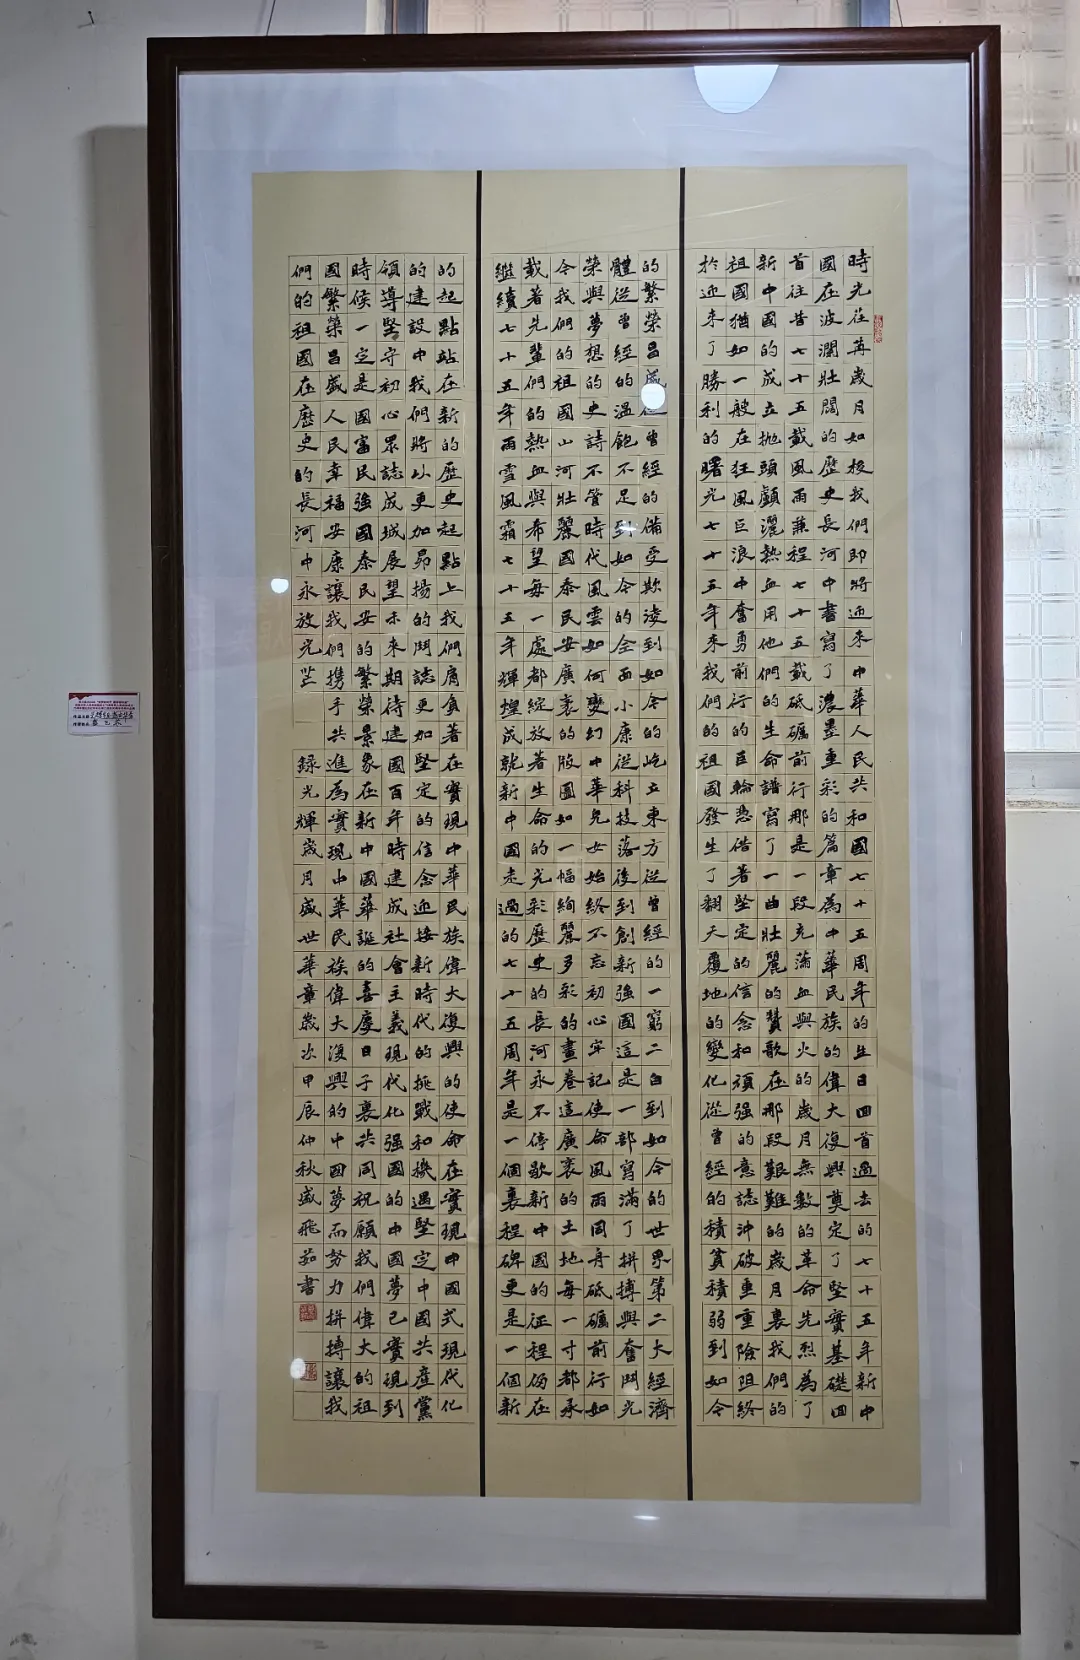 時光荏苒歲月如梭我們即將迎來中華人民共和國七十五周年的生日回首過去的七十五年新中
國在波瀾壯闊的歷史長河中書寫了濃墨重彩的篇章為中華民族的偉大復興奠定了堅實基礎回
首往昔七十五載風雨兼程七十五載砥礪前行那是一段充滿血與火的歲月無數的革命先烈為了
新中國的成立抛頭顱灑熱血用他們的生命譜寫了一曲壯麗的贊歌在那段艱難的歲月裏我們的
祖國猶如一艘在狂風巨浪中奮勇前行的巨輪憑借著堅定的信念和頑强的意誌沖破重重險阻終
於迎来了勝利的曙光七十五年来我們的祖國發生了翻天覆地的變化從曾經的積貧積弱到如今
的繁榮昌盛從曾經的備受欺淩到如今的屹立東方從曾經的一窮二白到如今的世界第二大經濟
體從曾經的溫飽不足到如今的全面小康從科技落後到創新强國這是一部寫滿了拼搏與奮鬥光
榮與夢想的史詩不管時代風雲如何變幻中華兒女始終不忘初心牢記使命風雨同舟砥礪前行如
今我們的祖國山河壯麗國泰民安廣袤的版圖如一幅絢麗多彩的畫卷這廣袤的土地每一寸都承
載著先輩們的熱血與希望每一處都綻放著生命的光彩歷史的長河永不停歇新中國的征程仍在
繼續七十五年雨雪風霜七十五年輝煌成就新中國走過的七十五周年是一個裏程碑更是一個新
的起點站在新的歷史起點上我們肩負著在實現中華民族偉大復興的使命在實現中國式現代化
的建設中我們將以更加昂揚的鬥誌更加堅定的信念迎接新時代的挑戰和機遇堅定中國共產黨
領導堅守初心眾誌成城展望未来期待建國百年時建成社會主義現代化强國的中國夢已實現到
時候一定是國富民強國泰民安的繁榮景象在新中國華誕的喜慶日子裏共同祝願我們偉大的祖
國繁榮昌盛人民幸福安康讓我們攜手共進為實現中華民族偉大復興的中国夢而努力拼搏讓我
們的祖國在歷史的長河中永放光芒
錄光輝歲月盛世華章歲次甲辰仲秋盛飛茹書